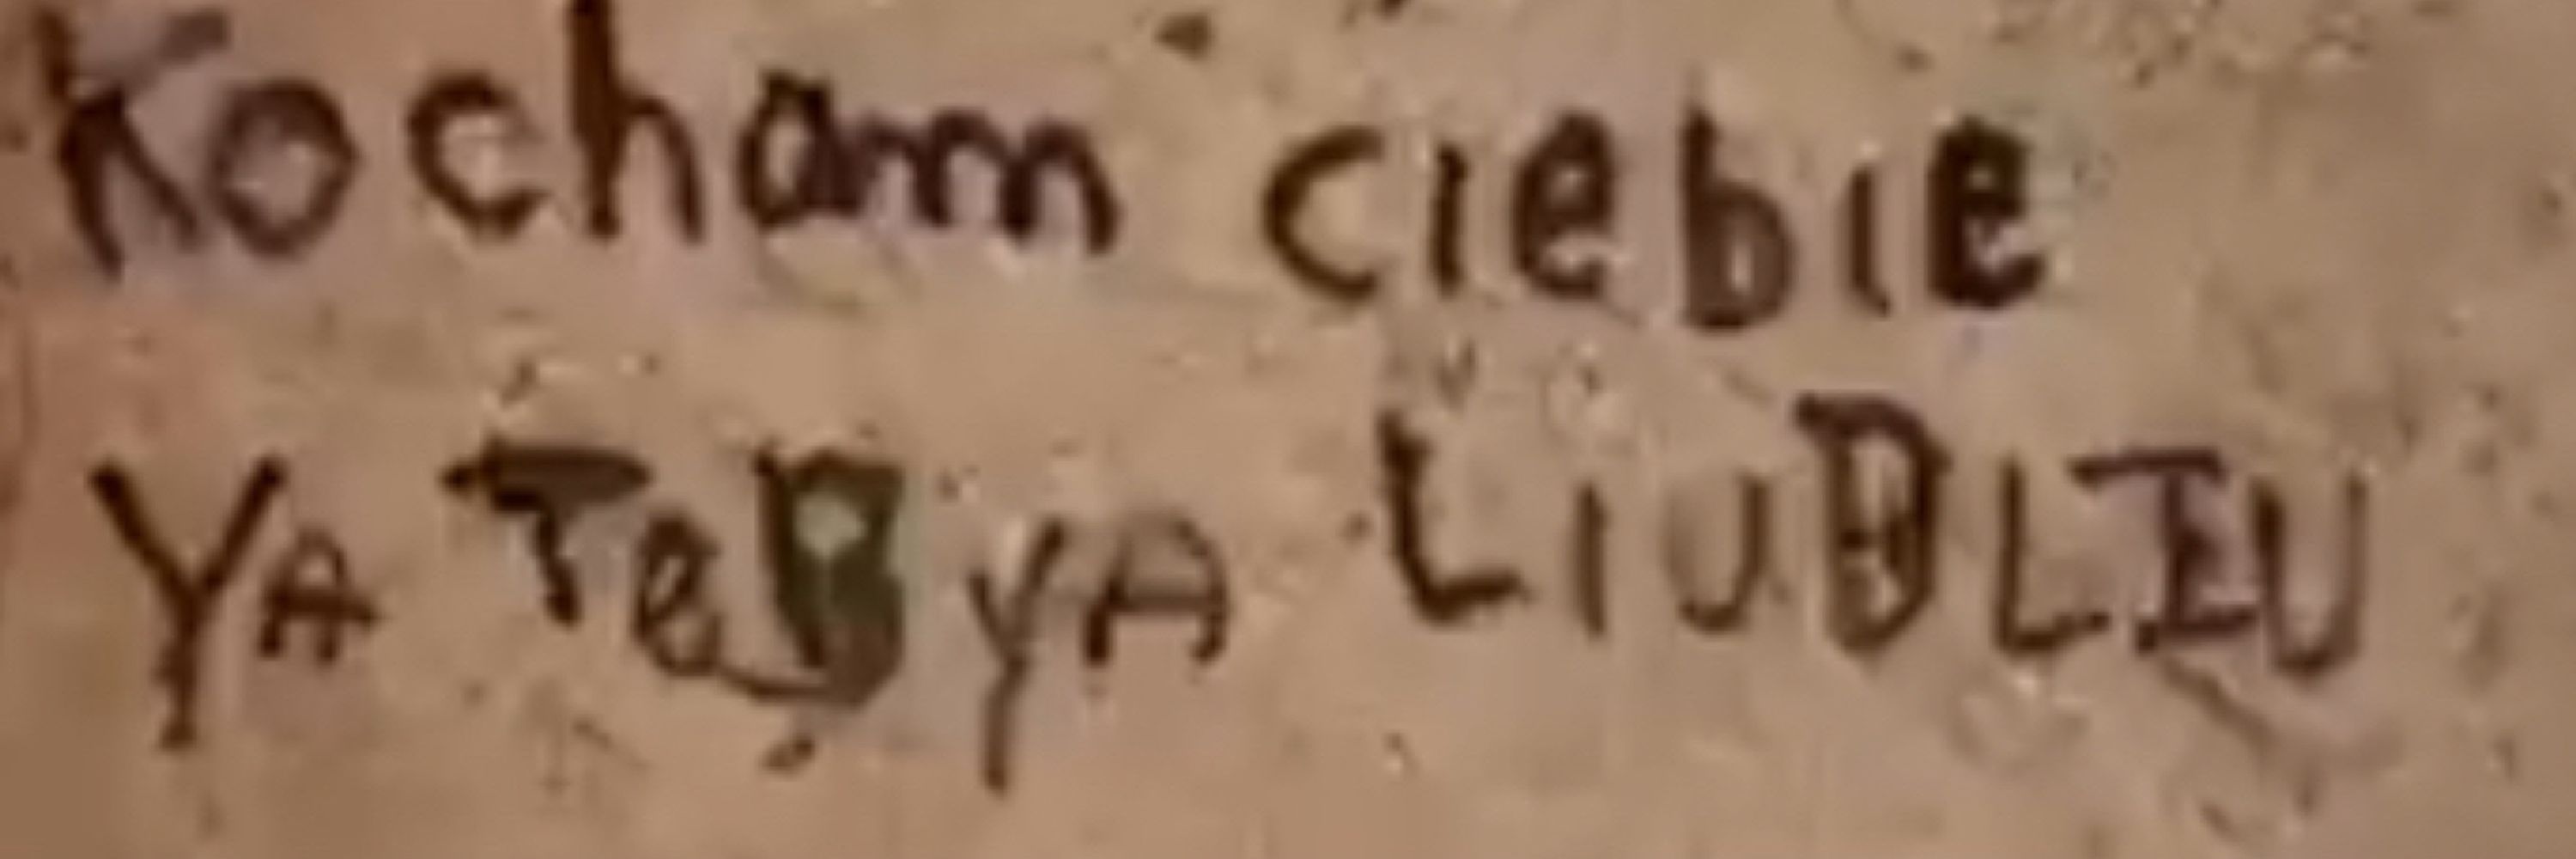 Kocham ciebie
YA TeBYA LIUBLIU